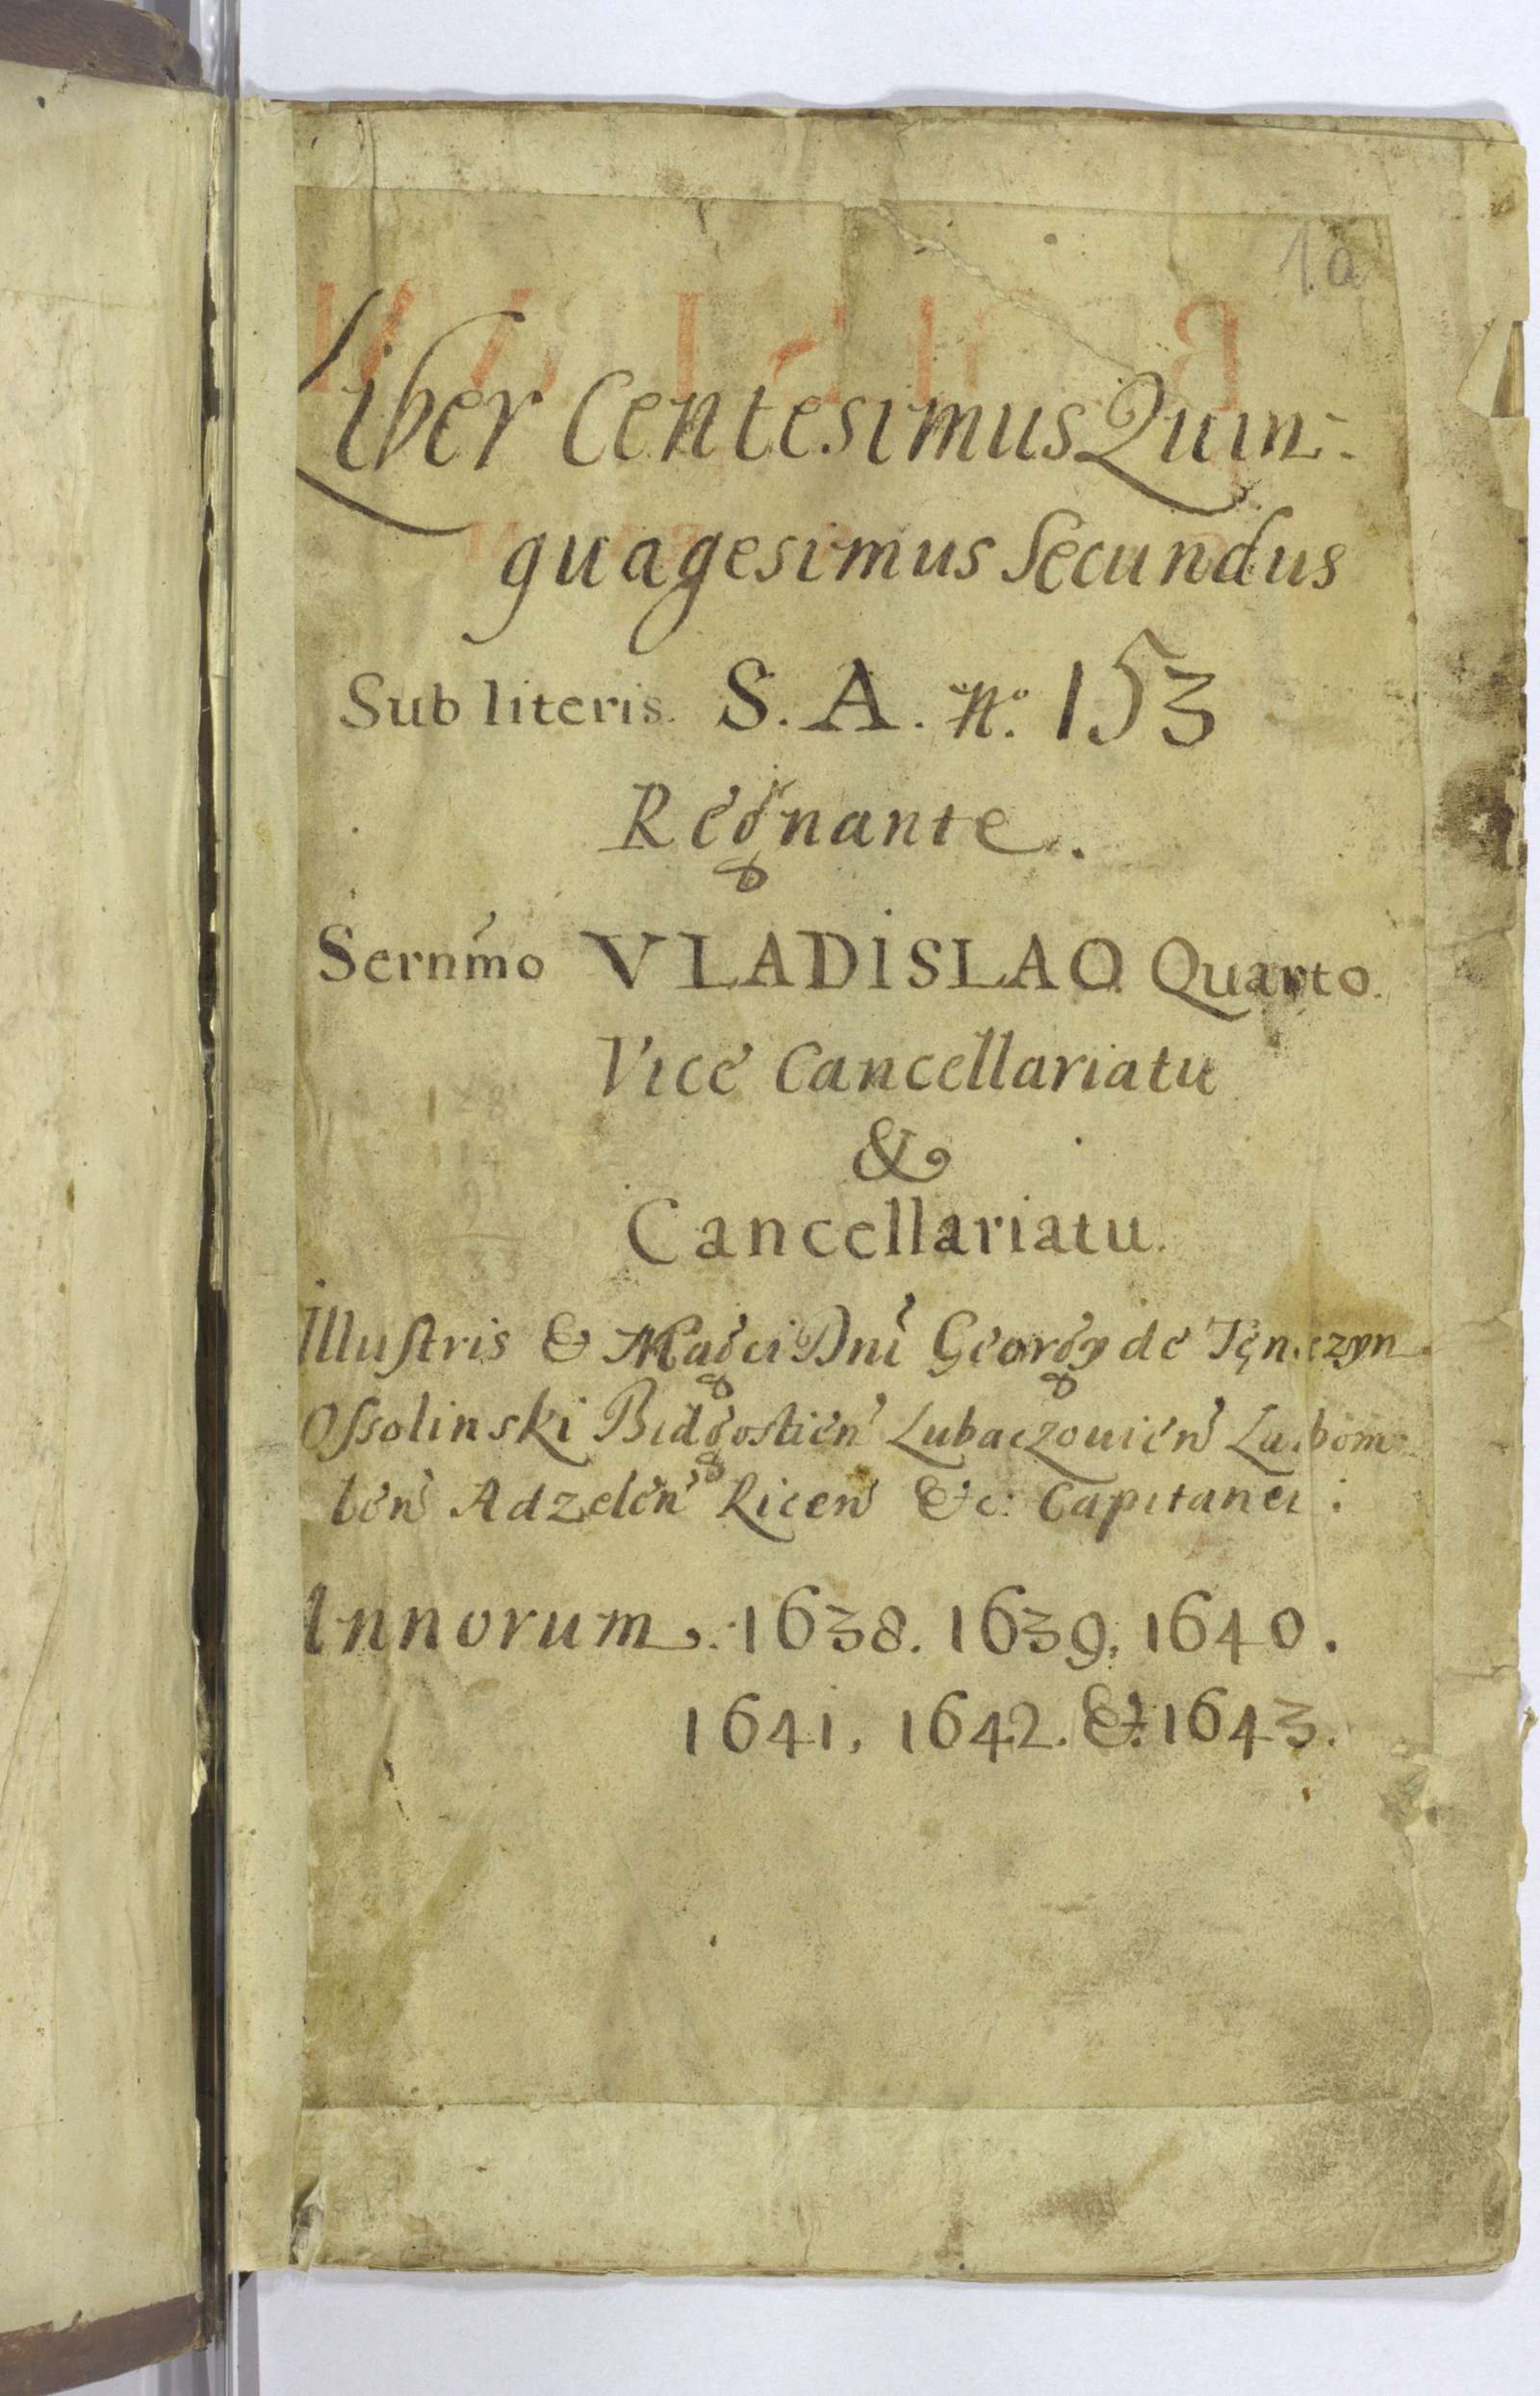 1a
Liber Centesimus Quin-
quagesimus Secundus
Sub literis. S. A. No. 153
Regnante.
Sernmo VLADISLAO Quarto.
Vice Cancellariatu
&
Cancellariatu.
Illustris & Magci Dni Georgy de Tęnczyn
Ossolinski Bidgostien Lubaczouien Lubom
len Adzelen Ricen &c: Capitanei:
Annorum. 1638. 1639, 1640.
1641, 1642. & 1643.